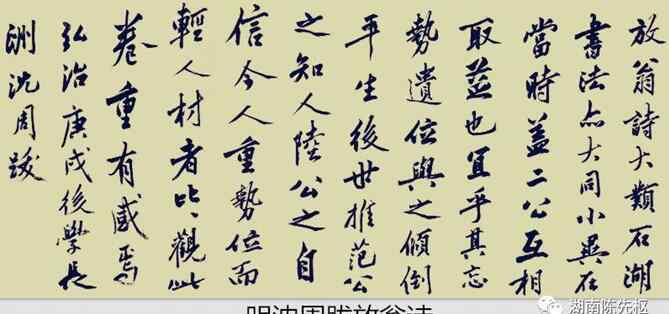 放翁詩大類石湖
書法亦大同小異在
當時蓋二公互相
取益也宜乎其忘
勢遺位與之傾倒
平生後世推范公
之知人陸公之自
信今人重勢位而
輕人材者比〻觀此
卷重有感焉
弘治庚戌後學長
洲沈周跋
明沈周跋放翁诗
湖南陈先枢